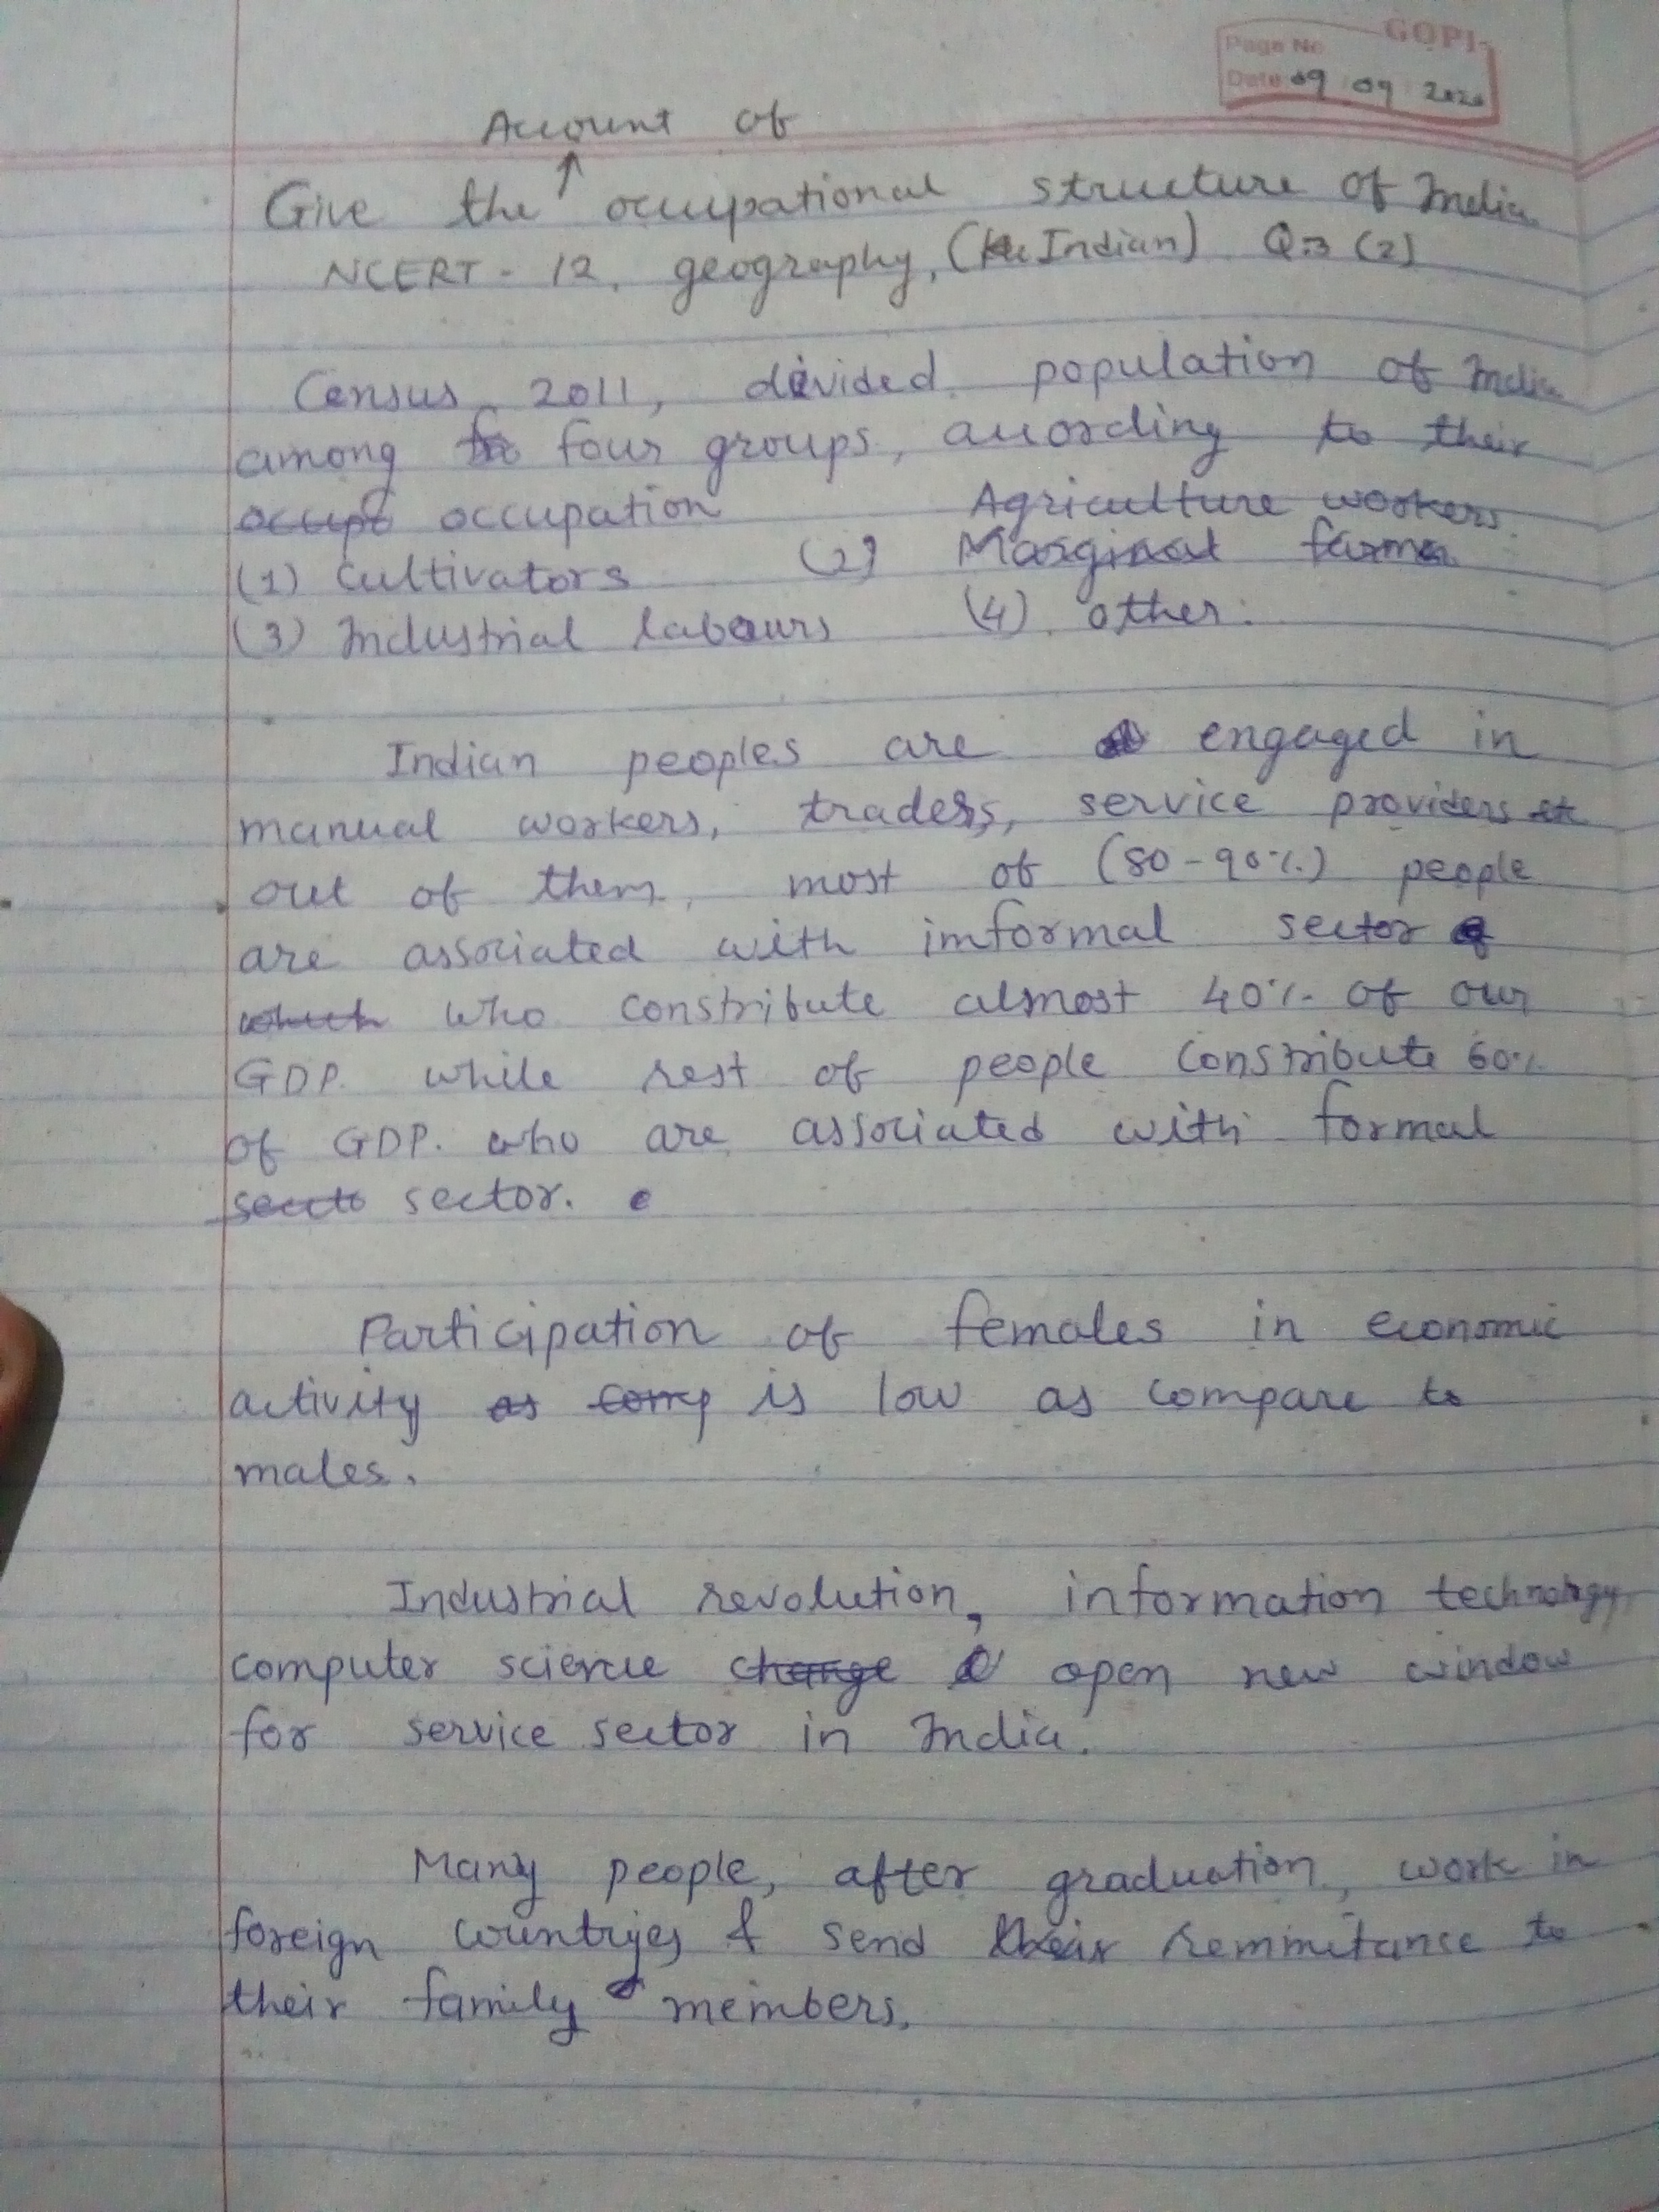 GOPI
Page No
Date 09 09 2020
Account of
↑
Give the occupational structure of India
NCERT - 12, geography, (Indian) Q:3 (2)
Census 2011, divided population of India
among four groups, according to their
occupation Agriculture workers
(1) Cultivators (2) Marginal farmer
(3) Industrial labours (4) other.
Indian peoples are engaged in
manual workers, traders, service providers
out of them, most of (80-90%) people
are associated with imformal sector
which who constribute almost 40% of our
GDP. while rest of people constribute 60%
of GDP. who are associated with formal
sector.
Participation of females in economic
activity as comp is low as compare to
males.
Industrial revolution, information technology,
computer science change open new window
for service sector in India.
Many people, after graduation, work in
foreign countries & send their remmitanse to
their family members.